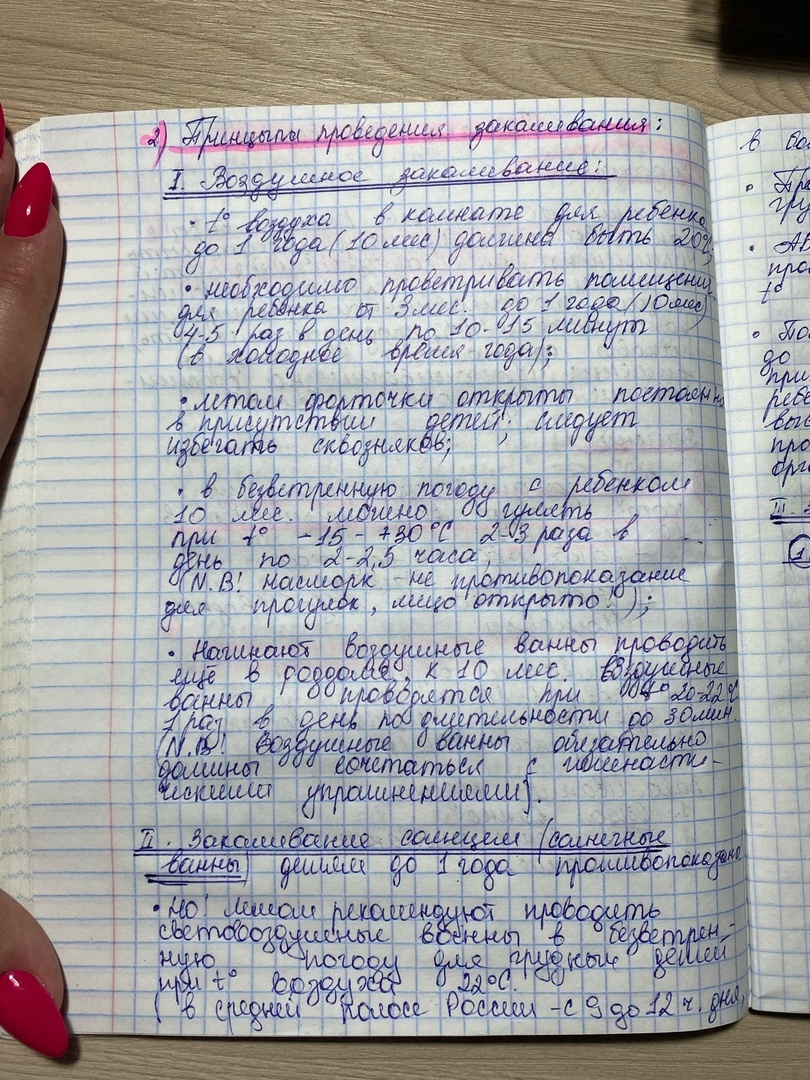 2) Принцыпы проведения закаливания:
I. Воздушное закаливание:
• t° воздуха в комнате для ребенка
до 1 года (10 мес) должна быть 20°C,
• необходимо проветривать помещение
для ребенка от 3 мес. до 1 года (10 мес)
4-5 раз в день по 10-15 минуты
(в холодное время года);
• летом форточки открыты постоянно
в присутствии детей; следует
избегать сквозняков;
• в безветренную погоду с ребенком
10 мес. можно гулять
при t° -15 - +30°C 2-3 раза в
день по 2-2,5 часа
(N.B! насморк - не противопоказание
для прогулок, лицо открыто!);
• Начинают воздушные ванны проводить
ещё в роддоме, к 10 мес. воздушные
ванны проводятся при t° 20-22°C
1 раз в день по длительности до 30 мин.
(N.B! Воздушные ванны обязательно
должны сочетаться с гимнасти-
ческими упражнениями).
II. Закаливание солнцем (солнечные
ванны) детям до 1 года противопоказано
• Но! Летом рекомендуют проводить
световоздушные ванны в безветрен-
ную погоду для грудных детей
при t° воздуха 22°C.
( в средней полосе России - с 9 до 12 ч. дня,
в бол
• Пр
гр
• АБ
про
t°
• По
до
при
ребе
выс
про
орга
III.
1